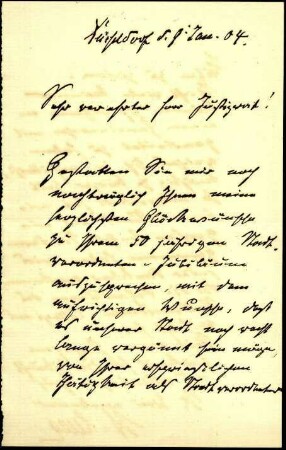 Düsseldorf d. 9 Jan. 04.
Sehr verehrter Herr Justizrat!
Gestatten Sie mir noch
nachträglich Ihnen meine
herzlichsten Glückwünsche
zu Ihrem 50 jährigen Stadt-
verordneten-Jubiläum
auszusprechen, mit dem
aufrichtigen Wunsche, daß
es unserer Stadt noch recht
lange vergönnt sein möge,
von Ihrer ersprießlichen
Tätigkeit als Stadtverordneter